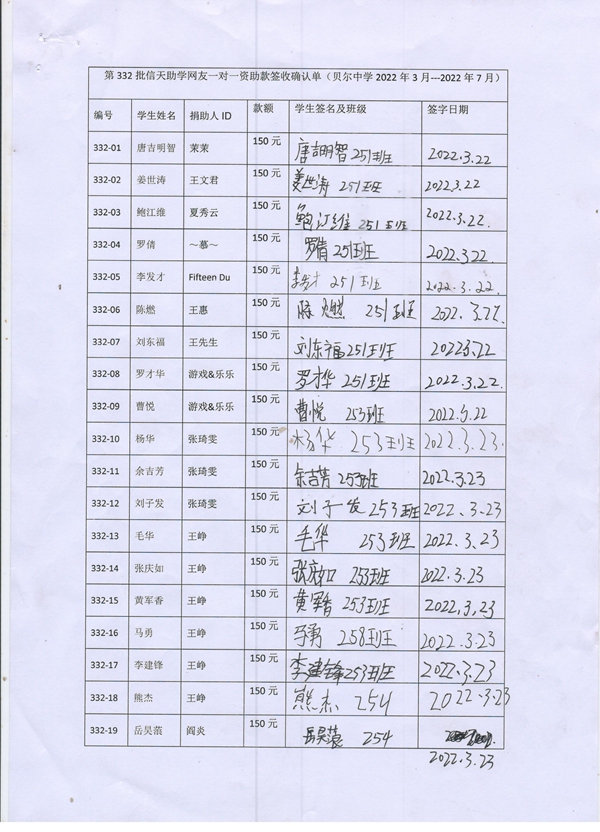 第 332 批信天助学网友一对一资助款签收确认单（贝尔中学 2022 年 3 月---2022 年 7 月）
编号 学生姓名 捐助人 ID 款额 学生签名及班级 签字日期
332-01 唐吉明智 茉茉 150 元 唐吉明智 251班 2022.3.22
332-02 姜世涛 王文君 150 元 姜世涛 251班 2022.3.22
332-03 鲍江维 夏秀云 150 元 鲍江维 251班 2022.3.22.
332-04 罗倩 ～慕～ 150 元 罗倩 251班 2022.3.22.
332-05 李发才 Fifteen Du 150 元 李发才 251班 2022.3.22.
332-06 陈燃 王惠 150 元 陈燃 251班 2022.3.22.
332-07 刘东福 王先生 150 元 刘东福 251班 2022.3.22
332-08 罗才华 游戏&乐乐 150 元 罗才华 251班 2022.3.22.
332-09 曹悦 游戏&乐乐 150 元 曹悦 253班 2022.3.22
332-10 杨华 张琦雯 150 元 杨华 253班 2022.3.23.
332-11 余吉芳 张琦雯 150 元 余吉芳 253班 2022.3.23
332-12 刘子发 张琦雯 150 元 刘子发 253班 2022.3.23
332-13 毛华 王峥 150 元 毛华 253班 2022.3.23
332-14 张庆如 王峥 150 元 张庆如 253班 2022.3.23
332-15 黄军香 王峥 150 元 黄军香 253班 2022.3.23
332-16 马勇 王峥 150 元 马勇 258班 2022.3.23
332-17 李建锋 王峥 150 元 李建锋 253班 2022.3.23
332-18 熊杰 王峥 150 元 熊杰 254 2022.3.23
332-19 岳昊蒗 阎炎 150 元 岳昊蒗 254
2022.3.23